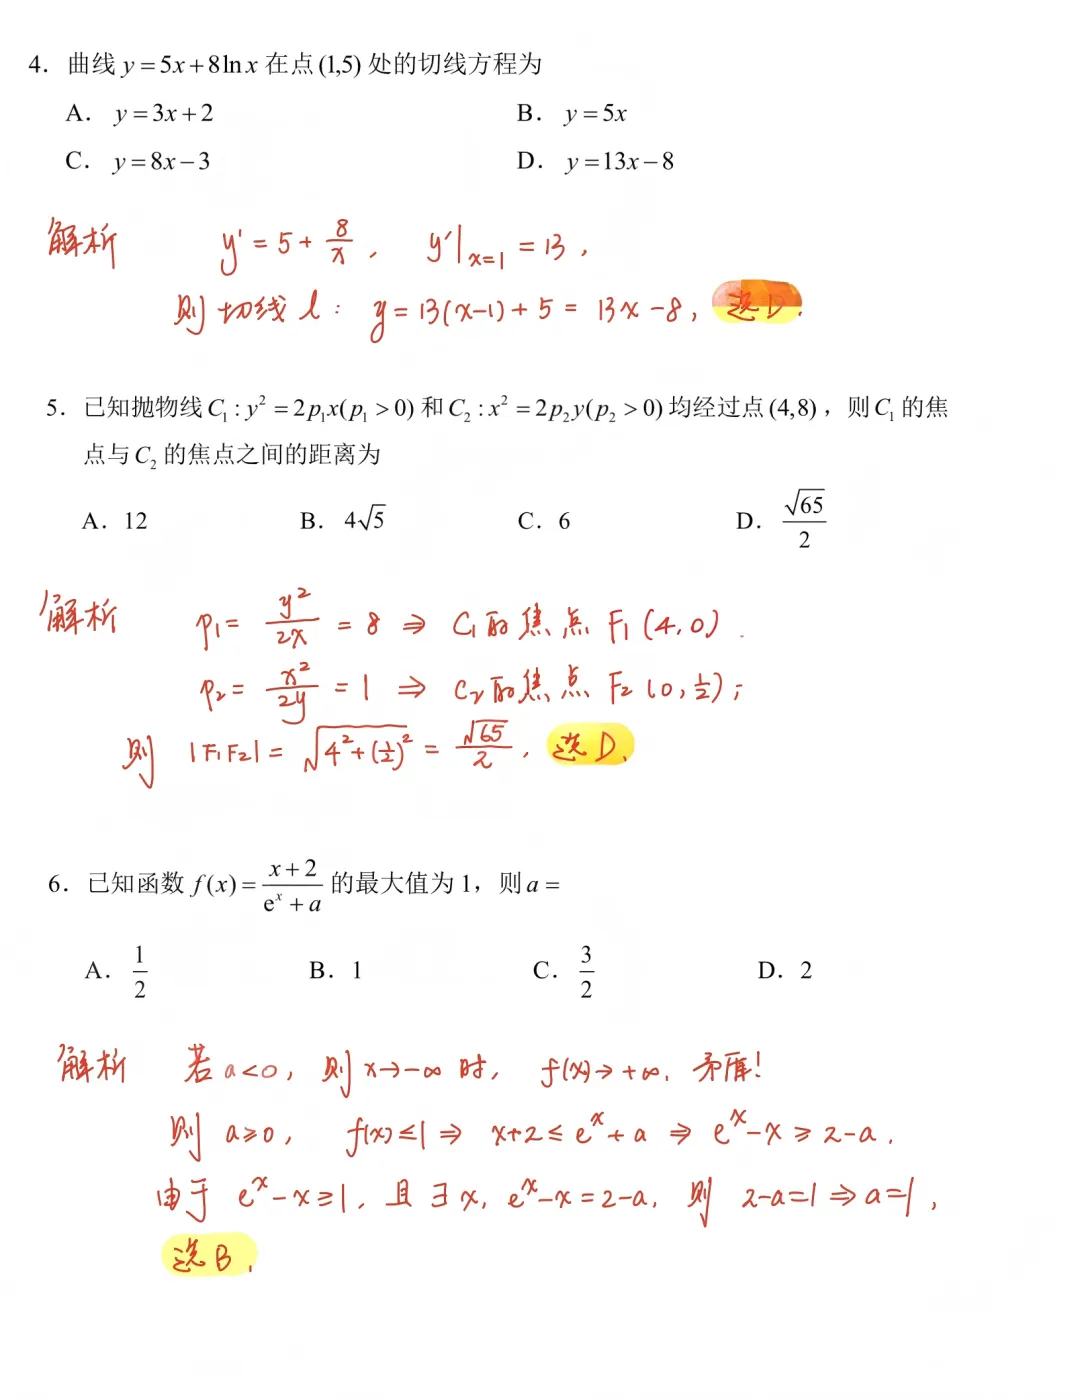 4．曲线 y=5x+8ln x 在点(1,5) 处的切线方程为
A． y=3x+2 B． y=5x
C． y=8x−3 D． y=13x−8
解析 y'=5+8/x， y'|x=1 =13，
则切线 l： y=13(x-1)+5 = 13x-8，选D.
5．已知抛物线 C₁:y²=2p₁x(p₁>0) 和 C₂:x²=2p₂y(p₂>0) 均经过点(4,8)，则 C₁ 的焦
点与 C₂ 的焦点之间的距离为
A．12 B．4√5 C．6 D．√65/2
解析 p₁= y²/2x = 8 ⇒ C₁的焦点 F₁(4,0).
p₂= x²/2y = 1 ⇒ C₂的焦点 F₂(0,1/2)；
则 |F₁F₂|= √(4²+(1/2)²) = √65/2，选D.
6．已知函数 f(x)=(x+2)/(eˣ+a) 的最大值为 1，则 a=
A．1/2 B．1 C．3/2 D．2
解析 若 a<0，则 x→-∞ 时，f(x)→+∞，矛盾！
则 a≥0， f(x)≤1 ⇒ x+2≤eˣ+a ⇒ eˣ-x≥2-a．
由于 eˣ-x≥1，且∃x，eˣ-x=2-a，则 2-a=1⇒a=1，
选B.